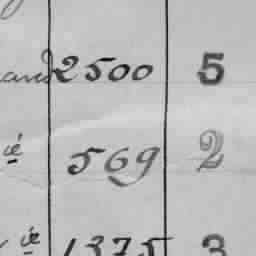 and 2500 5
ié 569 2
ié 1375 3